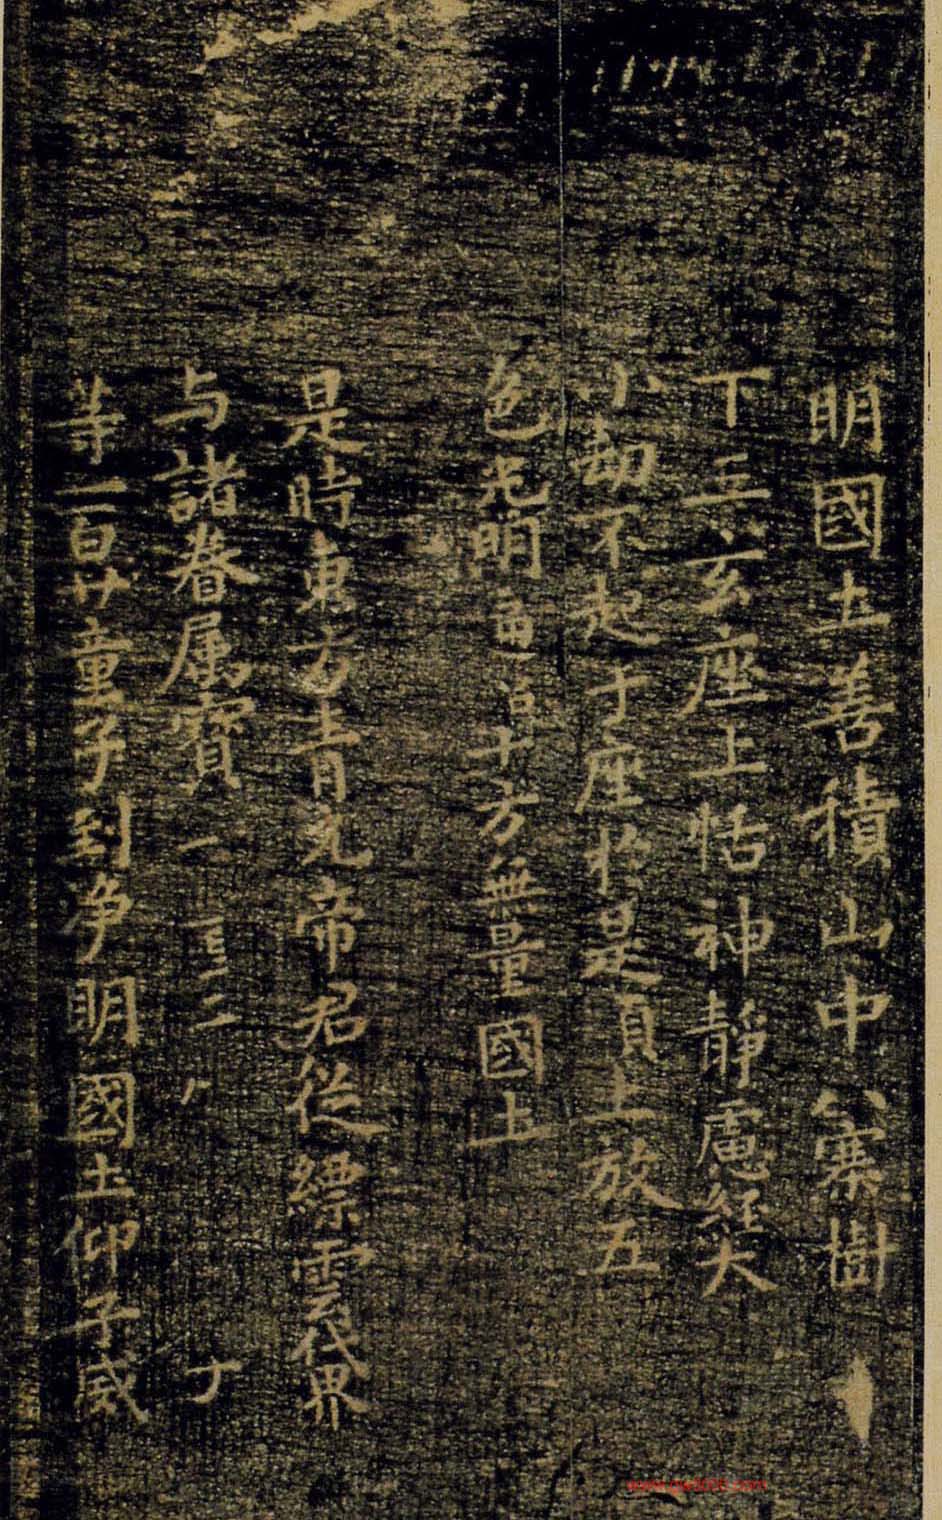 明國土善積山中八騫樹
下五玄座上恬神靜慮經大
小劫不起于座於是頂上放五
色光明普十方無量國土
是時東方青元帝君從縹雲世界
与諸眷属寳一
等一百廿童子到净明國土仰子威